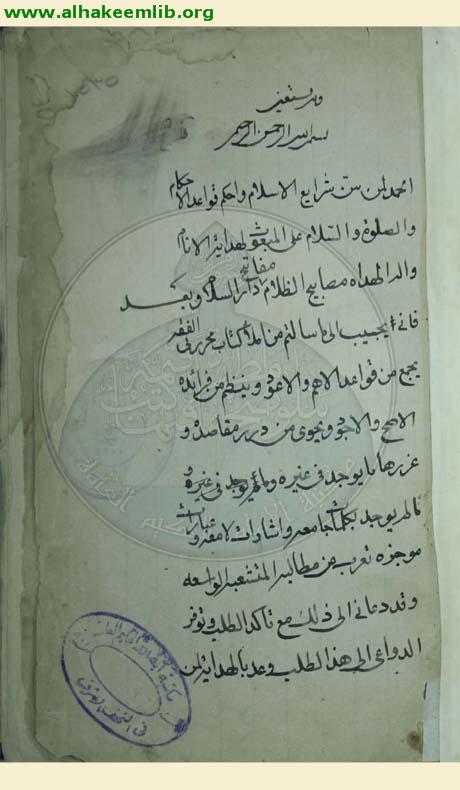 www.alhakeemlib.org
وبه نستعين
بسم الله الرحمن الرحيم
الحمد لمن سن شرايع الاسلام واحكم قواعد الاحكام
والصلوة والسلام على المبعوث لهداية الانام
واله الهداة مصابيح الظلام مفاتيح دار السلام وبعد
فاني مجيب الى ما سالتم من املاء كتاب محرر في الفقه
يجمع من قواعد الاهم والاعود وينظم من فرائده
الاصح والاجود ويحوى من درر مقاصده و
غررها ما يوجد في غيره وما لم يوجد في غيره
بكلمات جامعه واشارات لامعه وعبارات
موجزه تعرب عن مطالبه المتشعبه الواسعه
وقد دعانى الى ذلك مع تاكد الطلب وتوفر
الدواعى الى هذا الطلب وعد بالهداية لمن
مكتبة
في النجف الاشرف